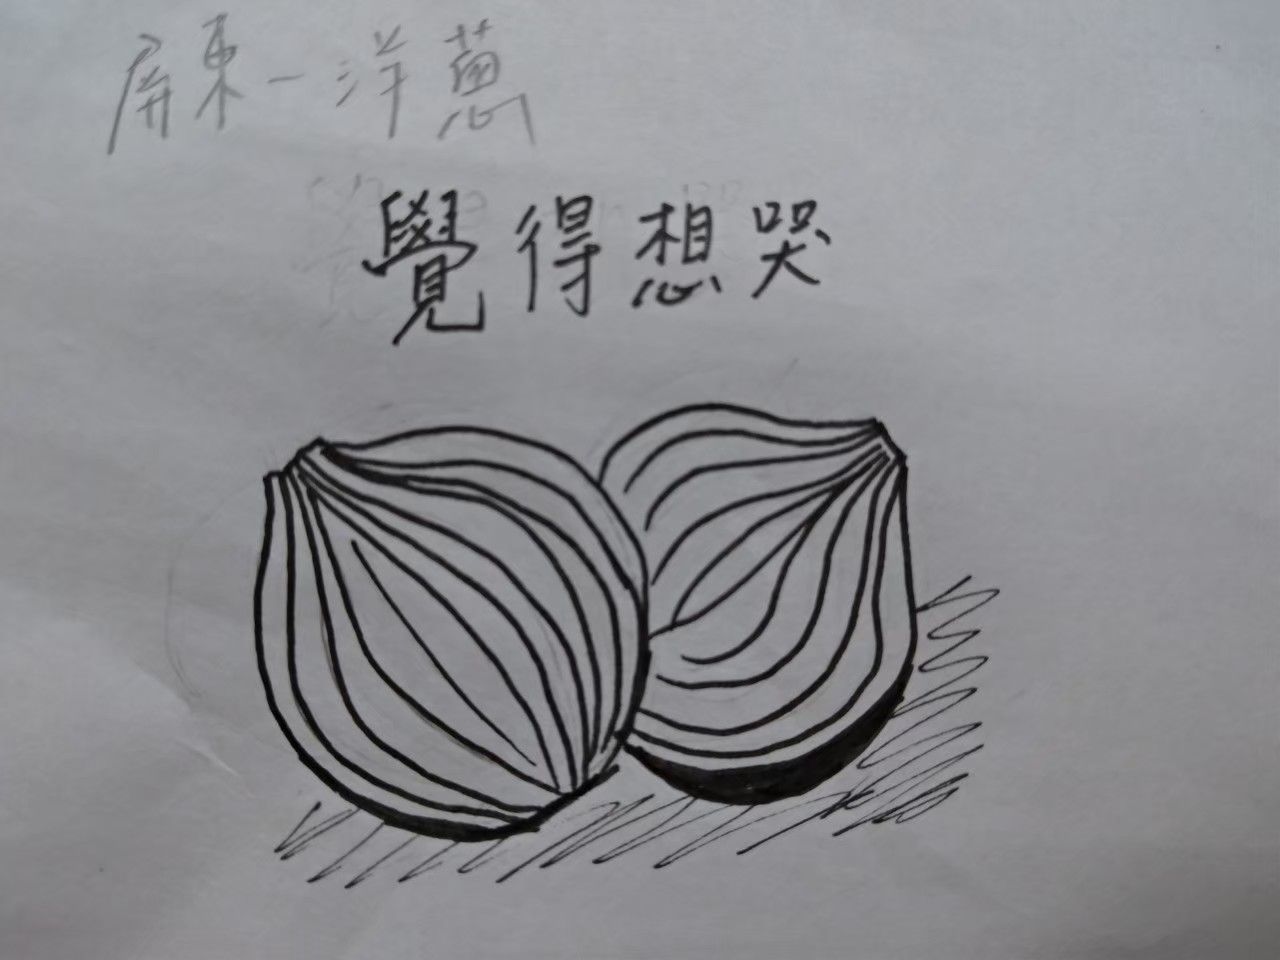 屏東-洋蔥
覺得想哭